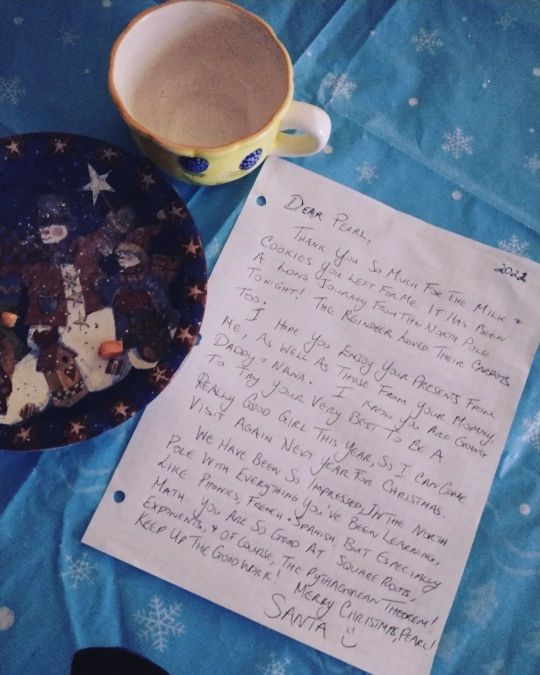 2022
Dear Pearl,
Thank You So Much For The Milk +
Cookies You Left For Me. It Has Been
A Long Journey From The North Pole
Tonight! The Reindeer Loved Their Carrots
Too.
I Hope You Enjoy Your Presents From
Me, As Well As Those From Your Mommy,
Daddy + Nana. I Know You Are Going
To Try Your Very Best To Be A
Really Good Girl This Year, So I Can Come
Visit Again Next Year For Christmas.
We Have Been So Impressed, In The North
Pole With Everything You've Been Learning,
Like Phonics, French + Spanish, But Especially
Math. You Are So Good At Square Roots,
Exponents, + Of Course, The Pythagorean Theorem!
Keep Up The Good Work!
Merry Christmas, Pearl!
Santa